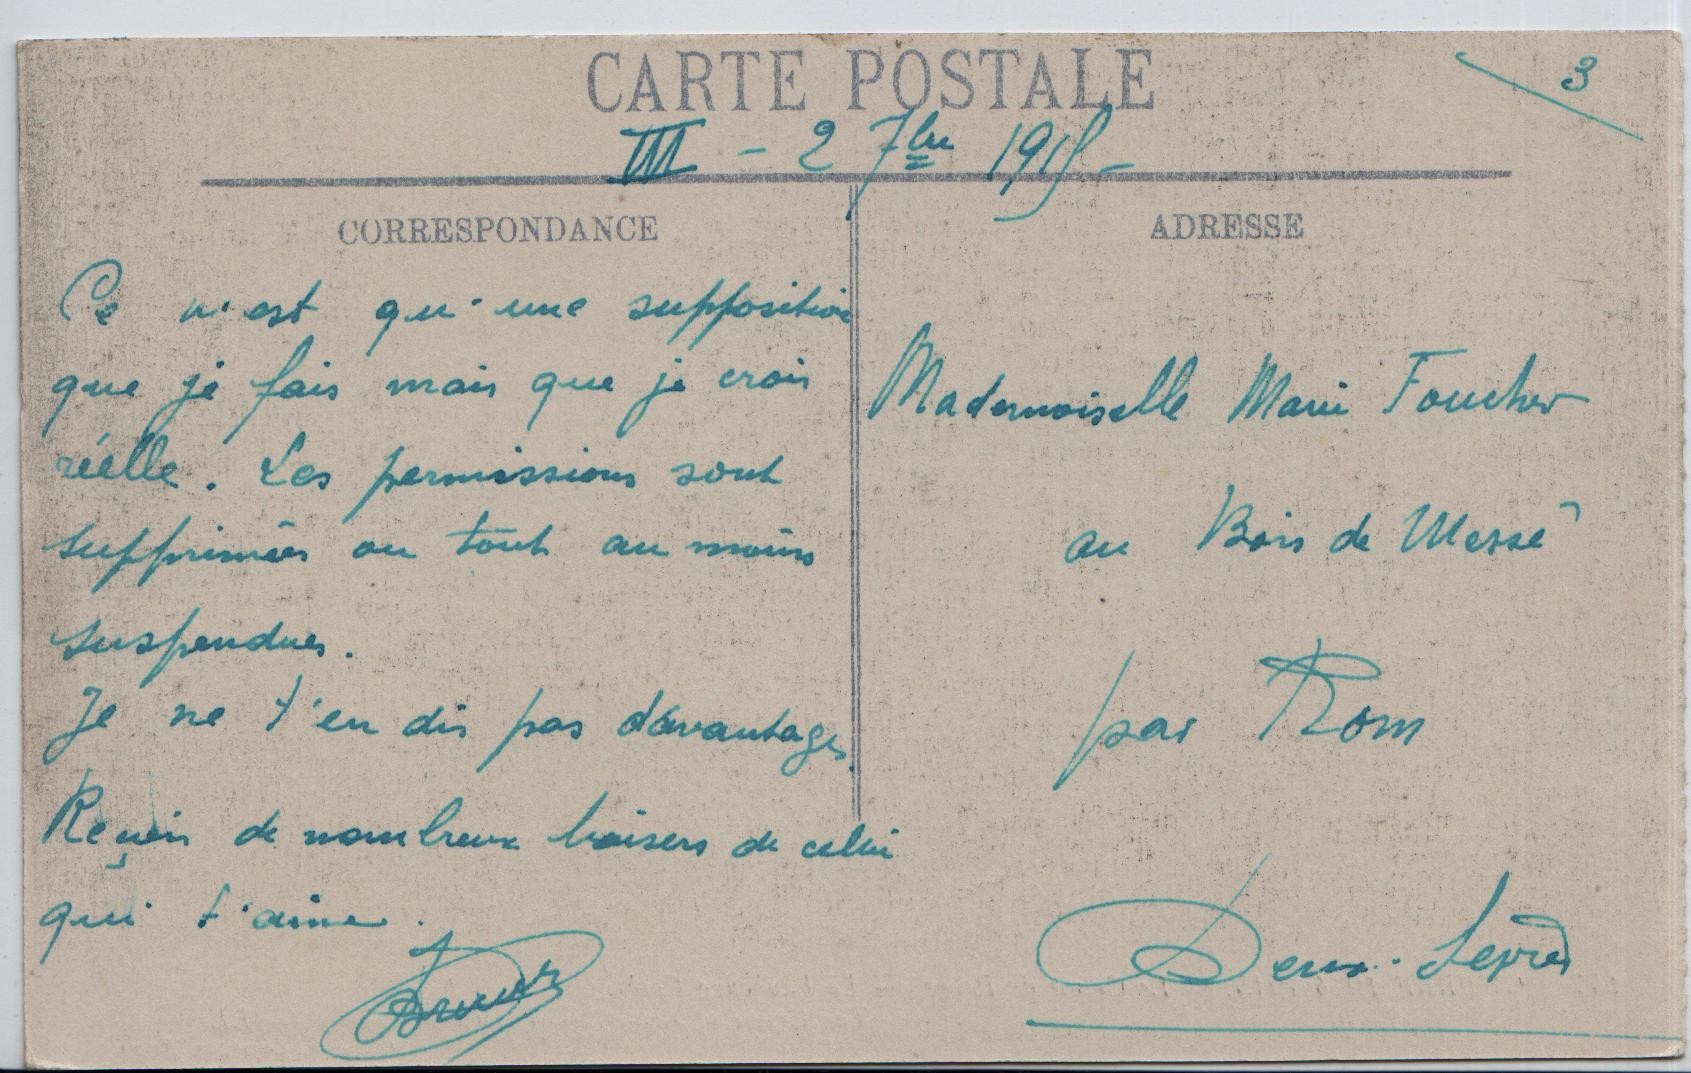 CARTE POSTALE
3
III - 2 7bre 1915 -
CORRESPONDANCE
Ce n'est qu'une supposition
que je fais mais que je crois
réelle. Les permissions sont
supprimées ou tout au moins
suspendues.
Je ne t'en dis pas davantage.
Reçois de nombreux baisers de celui
qui t'aime.
ADRESSE
Mademoiselle Marie Foucher
au Bois de Messé
par Rom
Deux-Sèvres